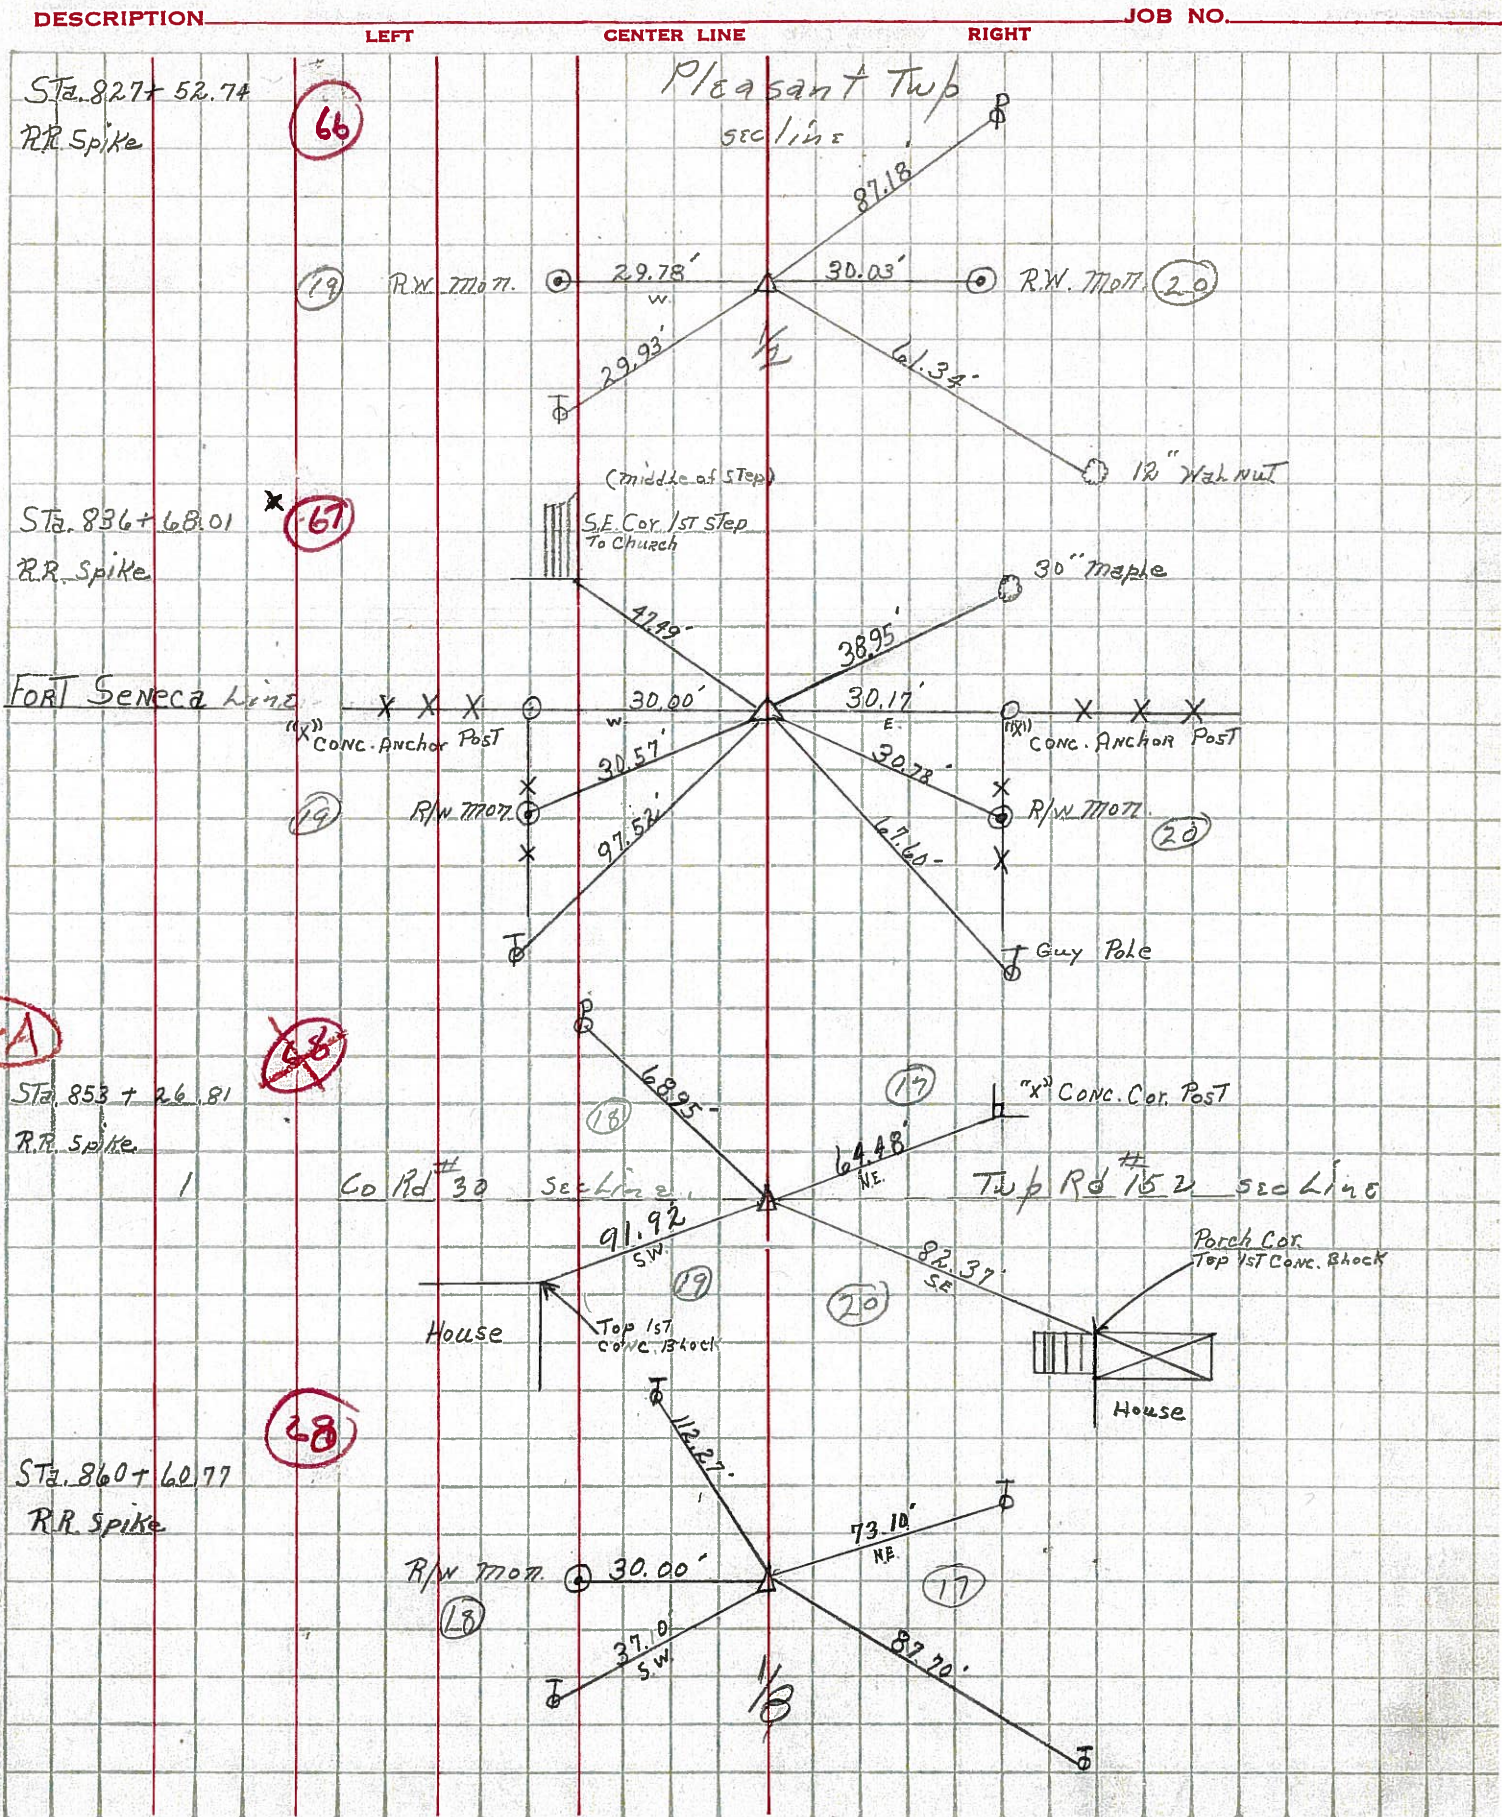 DESCRIPTION JOB NO.
LEFT CENTER LINE RIGHT
Sta. 827+ 52.74
R.R. Spike
66
Pleasant Twp
sec line
P
87.18'
19 R.W. Mon. 29.78' 30.03' R.W. Mon. 20
W.
29.93' 1/2 61.34'
T
12" Walnut
(middle of Step)
Sta. 836+68.01 x 67
S.E. Cor. 1st Step
To Church
R.R. Spike
30" Maple
47.49' 38.95'
Fort Seneca Line X X X 30.00' 30.17' X X X
W E.
"X" Conc. Anchor Post "X" Conc. Anchor Post
30.57' 30.78'
X X
19 R/W Mon. R/W Mon. 20
97.52' 67.60'
X X
T T Guy Pole
P
A
Sta. 853 + 26.81
R.R. Spike
68.95'
18 17
"X" Conc. Cor. Post
64.48'
N.E.
1 Co Rd #30 Sec Line Twp Rd #152 sec Line
91.92
S.W.
82.37'
S.E.
Porch Cor.
Top 1st Conc. Block
19 20
House
Top 1st
Conc. Block
House
T
112.27'
Sta. 860+60.77
R.R. Spike
T
73.10'
N.E.
R/W Mon. 30.00'
18 17
37.10'
S.W.
87.70'
T
T